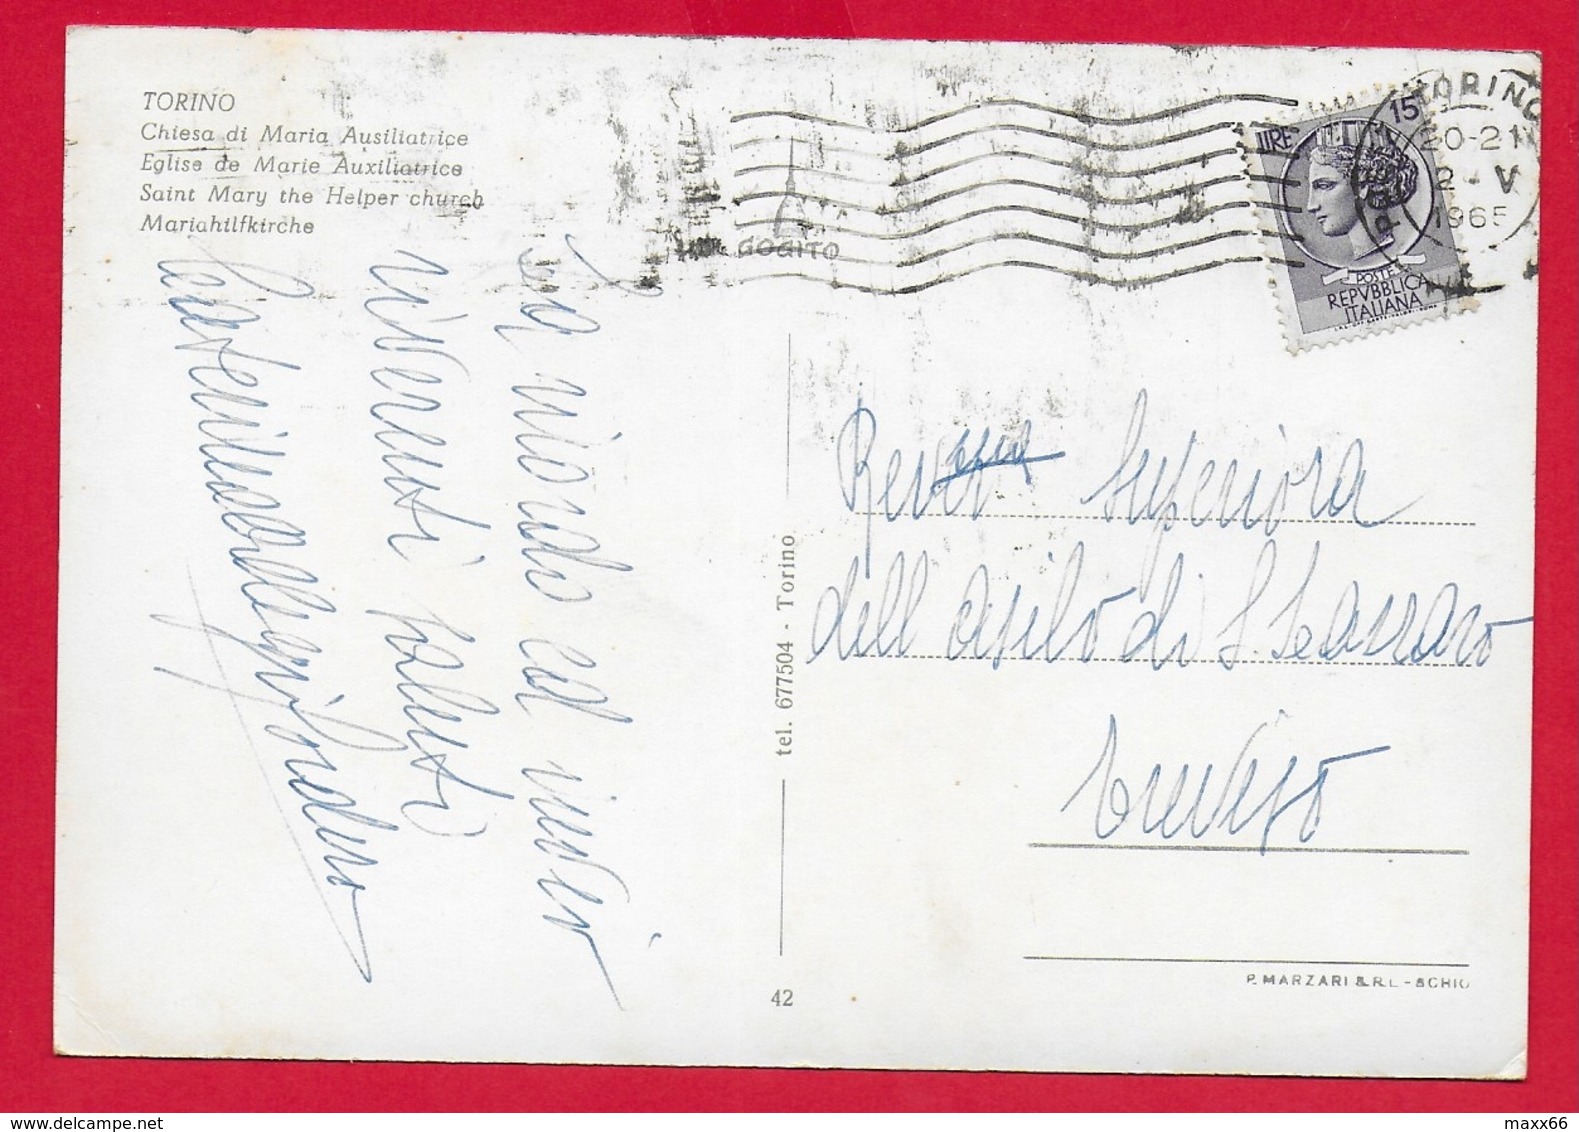 TORINO
Chiesa di Maria Ausiliatrice
Eglise de Marie Auxiliatrice
Saint Mary the Helper church
Mariahilfkirche
GOGITO
TORINO
20-21
2-V
1965
LIRE 15
POSTE
REPVBBLICA
ITALIANA
La ricordo ed invio
riverenti saluti
Superiora
dell'asilo di S. Lazzaro
Treviso
tel. 677504 - Torino
42
P. MARZARI S.R.L. - SCHIO
maxx66
delcampe.net